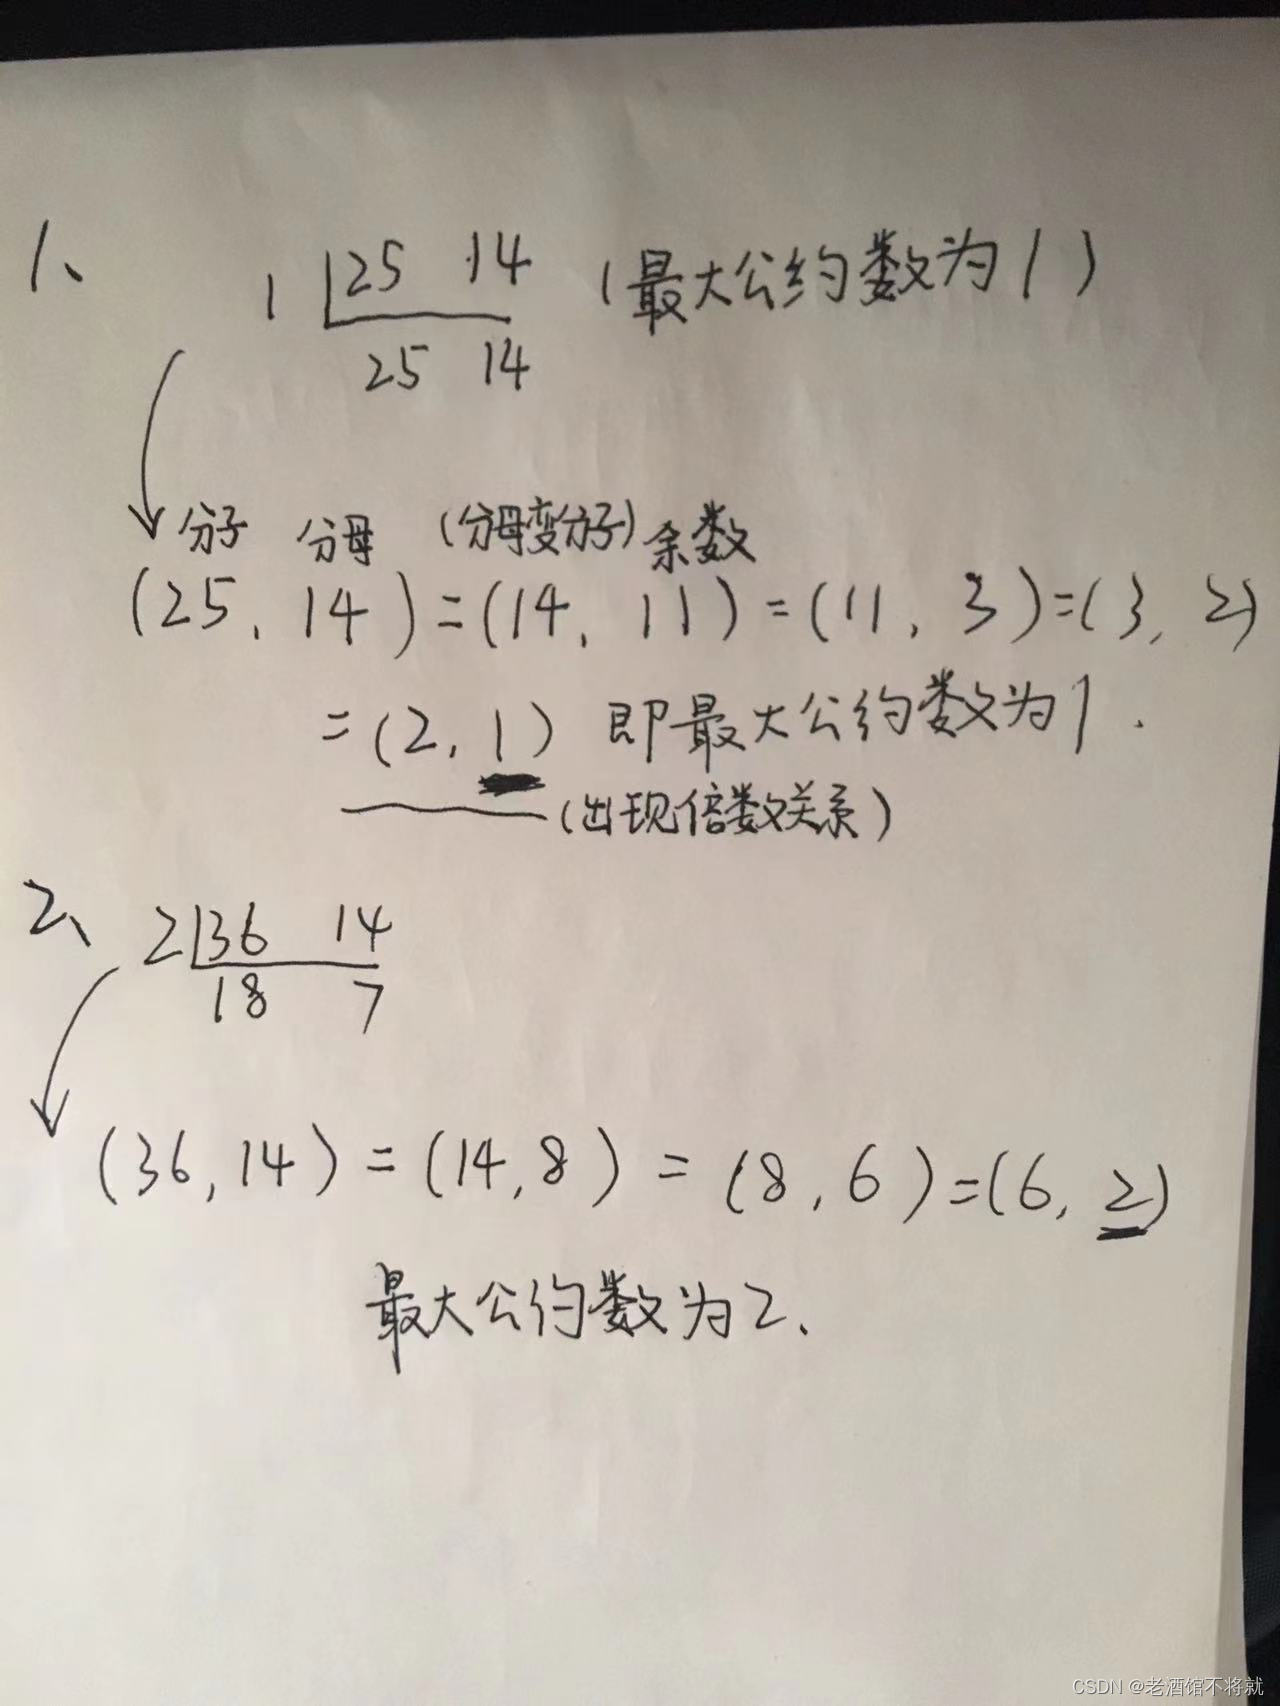 1、
1 25 14 (最大公约数为1)
25 14
分子 分母 (分母变分子) 余数
(25, 14) = (14, 11) = (11, 3) = (3, 2)
= (2, 1) 即最大公约数为1.
(出现倍数关系)
2、 2 36 14
18 7
(36,14) = (14,8) = (8,6) = (6,2)
最大公约数为2.
CSDN @老酒馆不将就